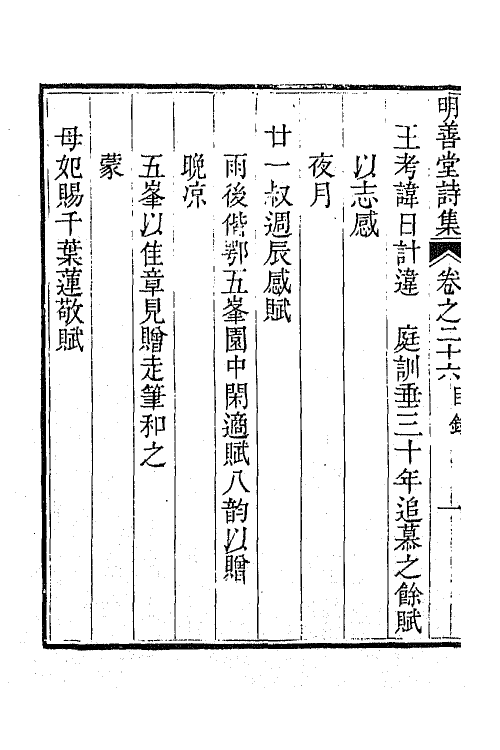 明善堂詩集 卷之二十六 目錄 一
王考諱日計違 庭訓垂三十年追慕之餘賦
以志感
夜月
廿一叔週辰感賦
雨後偕鄂五峯園中閑適賦八韵以贈
晚凉
五峯以佳章見贈走筆和之
蒙
母妃賜千葉蓮敬賦